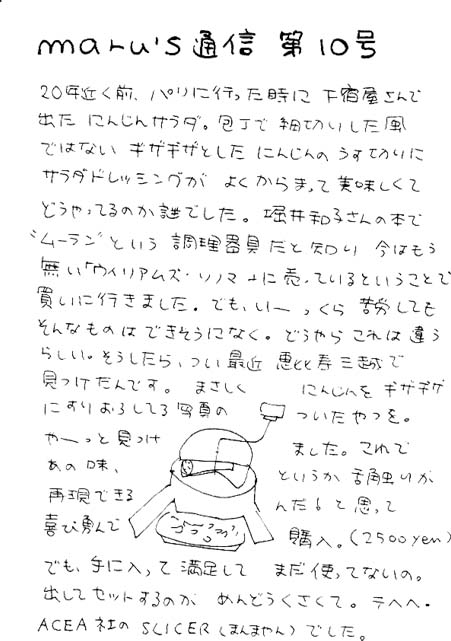 maru's 通信 第10号
20年近く前、パリに行った時に下宿屋さんで
出た にんじんサラダ。包丁で細切りした風
ではない ギザギザとした にんじんの うす切りに
サラダドレッシングが よくからまって 美味しくて
どうやってるのか謎でした。堀井和子さんの本で
"ムーラン"という 調理器具だと知り 今はもう
無い「ウィリアムズ・ソノマ」に売っているということで
買いに行きました。でも、いーっくら 苦労しても
そんなものは できそうになく。どうやら これは違う
らしい。そうしたら、つい最近 恵比寿三越で
見つけたんです。 まさしく にんじんを ギザギザ
にすりおろしてる写真の ついたやつを。
やーっと見つけ ました。これで
あの味、 というか 舌触りが
再現できる んだ!と思って
喜び勇んで 購入。(2500yen)
でも、手に入って 満足して まだ使ってないの。
出してセットするのが めんどうくさくて。テヘヘ・
ACEA社の SLICER (まんまやん) でした。